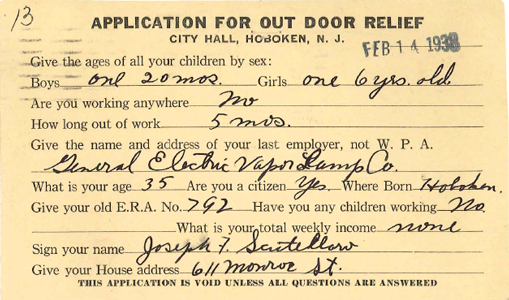 13
APPLICATION FOR OUT DOOR RELIEF
CITY HALL, HOBOKEN, N. J.
FEB 14 1938
Give the ages of all your children by sex:
Boys one 20 mos. Girls one 6 yrs. old.
Are you working anywhere No
How long out of work 5 mos.
Give the name and address of your last employer, not W. P. A.
General Electric Vapor Lamp Co.
What is your age 35 Are you a citizen Yes Where Born Hoboken.
Give your old E.R.A. No. 792 Have you any children working No.
What is your total weekly income none
Sign your name Joseph F.
Give your House address 611 Monroe St.
THIS APPLICATION IS VOID UNLESS ALL QUESTIONS ARE ANSWERED